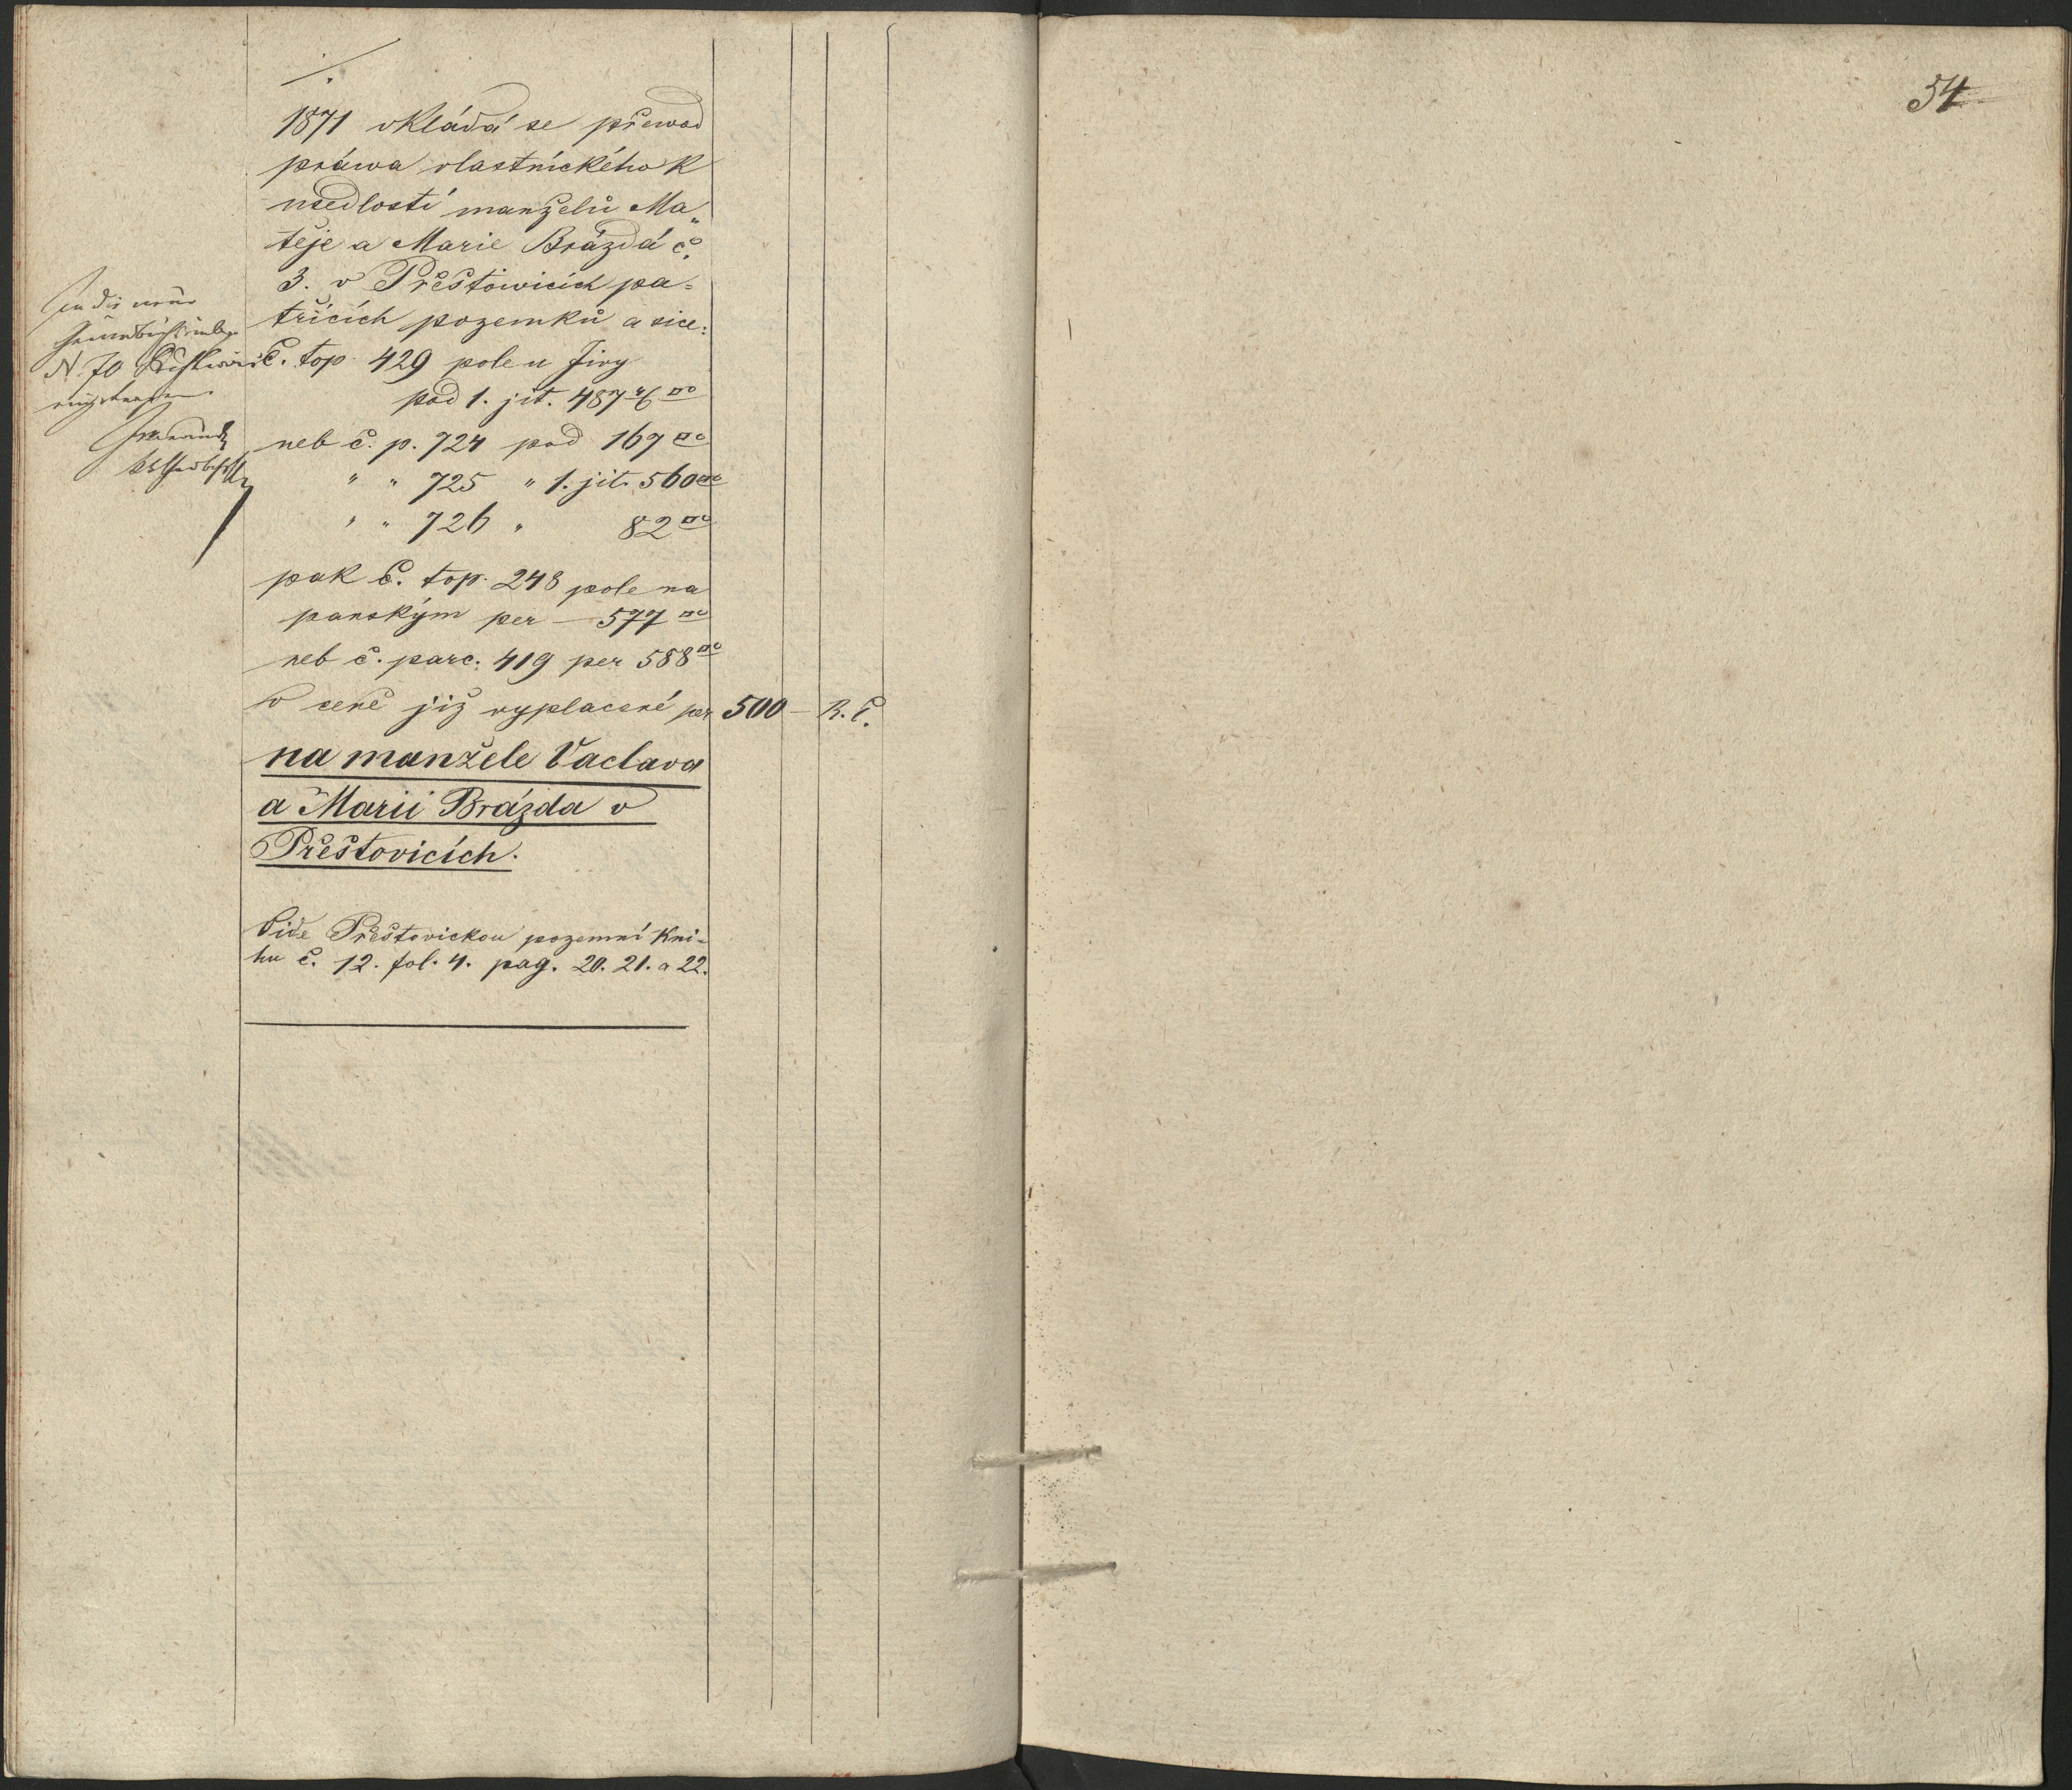 54
./.
1871 vkládá se přewod
práwa vlastnického k
usedlosti manželů Ma„
těje a Marie Brázdá č.
3. v Přeštowicích pa=
třících pozemků a sice:
In die neue
N. 70
č. top. 429 pole u Jivy
pod 1. jit. 487 4/6 □°
neb č. p. 724 pod 167 □°
" " 725 " 1. jit. 560 □°
" " 726 " 82 □°
pak č. top. 248 pole na
panským per — 577 □°
neb č. parc. 419 per 588 □°
v ceně již vyplacené per 500 — R. č.
na manžele Vaclava
a Marii Brázda v
Přeštovicích.
Vide Přeštovickou pozemní kni=
hu č. 12. fol. 4. pag. 20. 21. a 22.